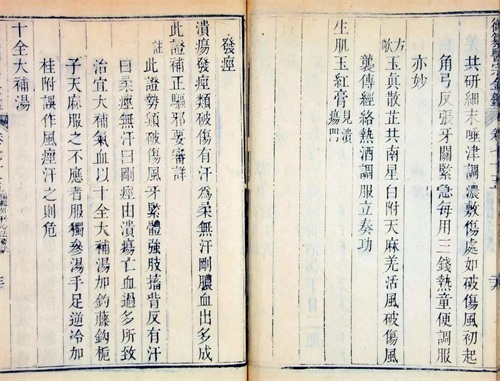 共研細末唾津調濃敷傷處如破傷風初起
角弓反張牙關緊急每用三錢熱童便調服
亦妙
方歌玉真散芷共南星白附天麻羌活風破傷風
襲傳經絡熱酒調服立奏功
生肌玉紅膏見潰瘍門
發痙
潰瘍發痙類破傷有汗為柔無汗剛膿血出多成
此證補正驅邪要審詳
註此證勢類破傷風牙緊體強肢搐背反有汗
曰柔痙無汗曰剛痙由潰瘍亡血過多所致
治宜大補氣血以十全大補湯加鉤藤鉤梔
子天麻服之不應者服獨參湯手足逆冷加
桂附誤作風痙汗之則危
十全大補湯